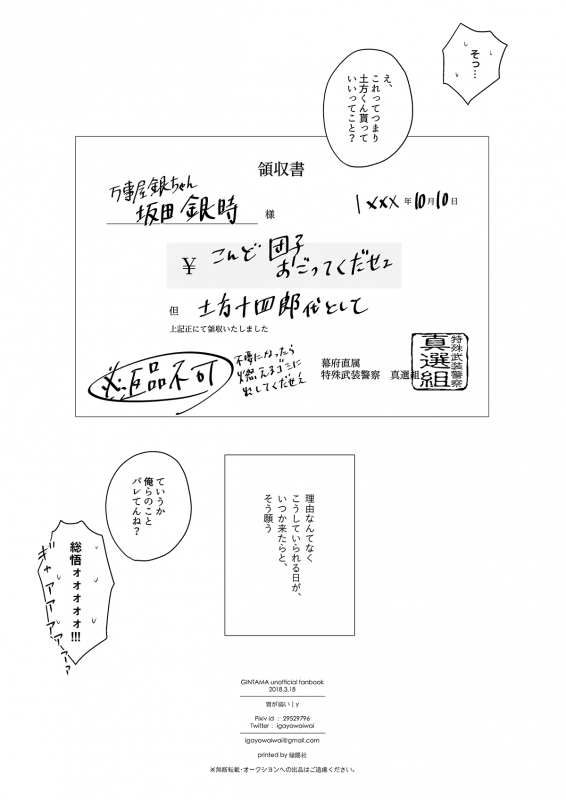 そっ…
え、
これってつまり
土方くん貰って
いいってこと？
領収書
万事屋銀ちゃん
坂田 銀時 様
1xxx年10月10日
¥ こんど 団子
おごってくだせェ
但 土方十四郎代として
上記正にて領収いたしました
※返品不可
不要になったら
燃えるゴミに
出してくだせェ
幕府直属
特殊武装警察 真選組
特殊武装警察
真選組
ていうか
俺らのこと
バレてんね？
総悟ォォォォォ!!!
ギャアアアアアァァ
理由なんてなく
こうしていられる日が、
いつか来たらと、
そう願う
GINTAMA unofficial fanbook
2018.3.18
胃が弱い | y
Pixiv id ： 29529796
Twitter： igayowaiwai
igayowaiwai@gmail.com
printed by 緑陽社
※無断転載・オークションへの出品はご遠慮ください。